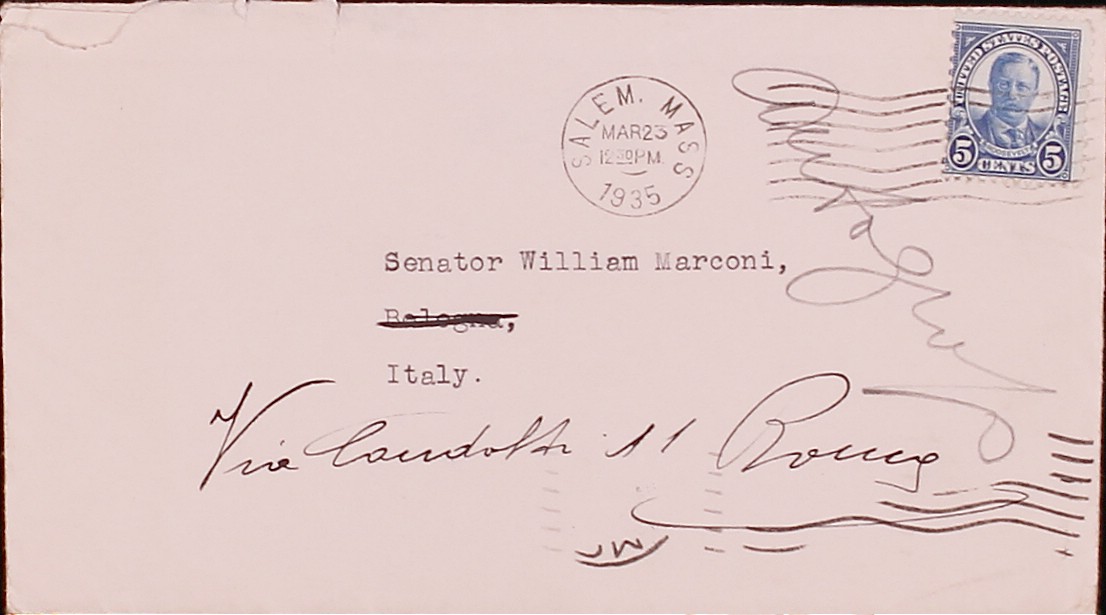 UNITED STATES POSTAGE
ROOSEVELT
5 CENTS 5
SALEM, MASS
MAR 23
12 30 PM
1935
Senator William Marconi,
Bologna,
Italy.
Via Condotti 11 Roma